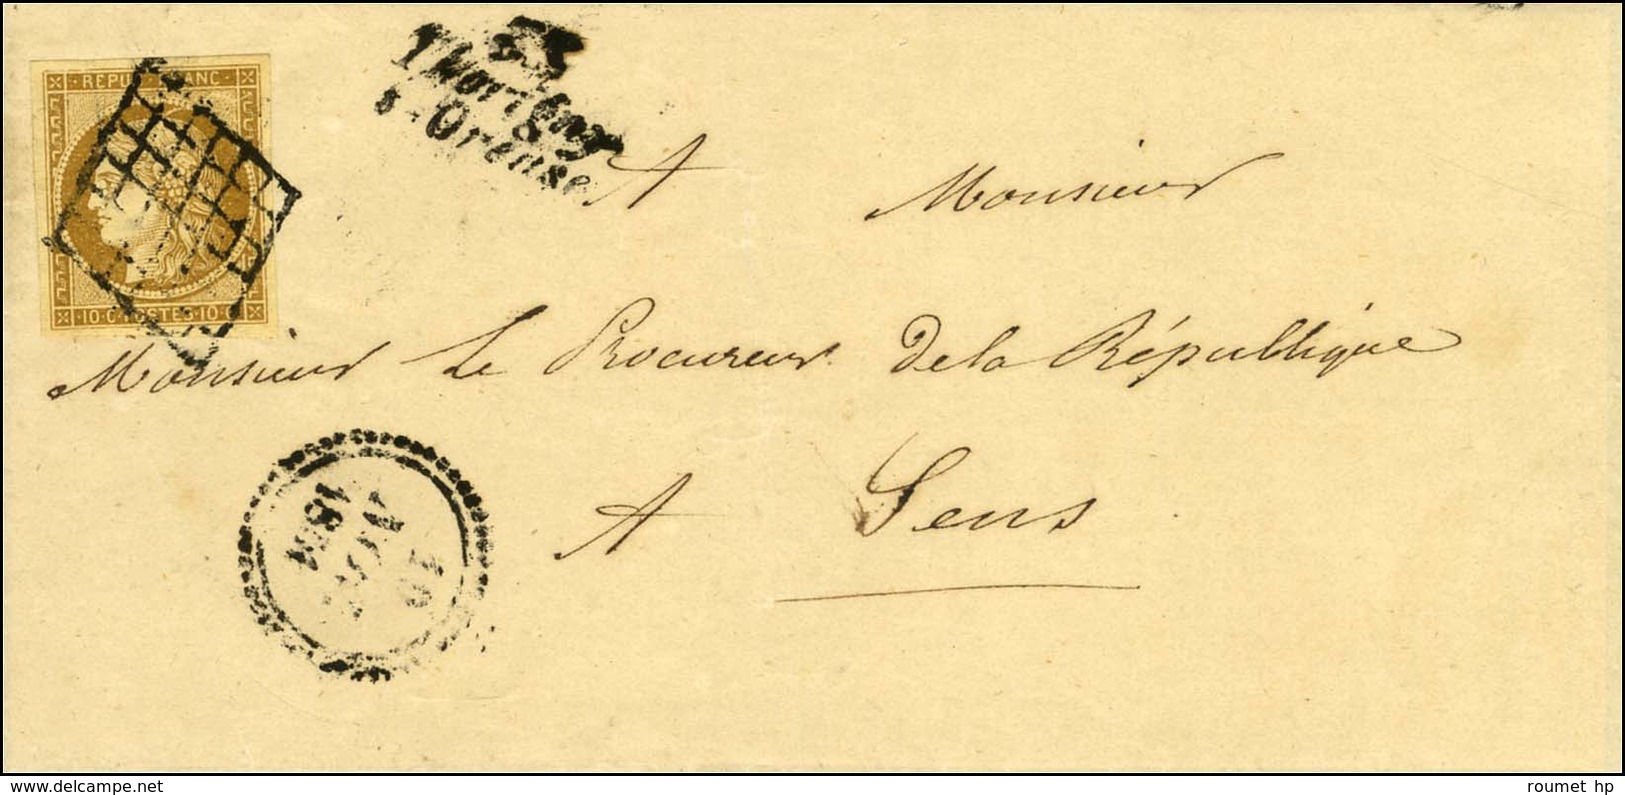 REPUB FRANC
10·C·POSTES·10·C
Thorigny
s-Oreuse
A Monsieur
Monsieur Le Procureur de la République
A Sens
10
roumet hp
www.delcampe.net